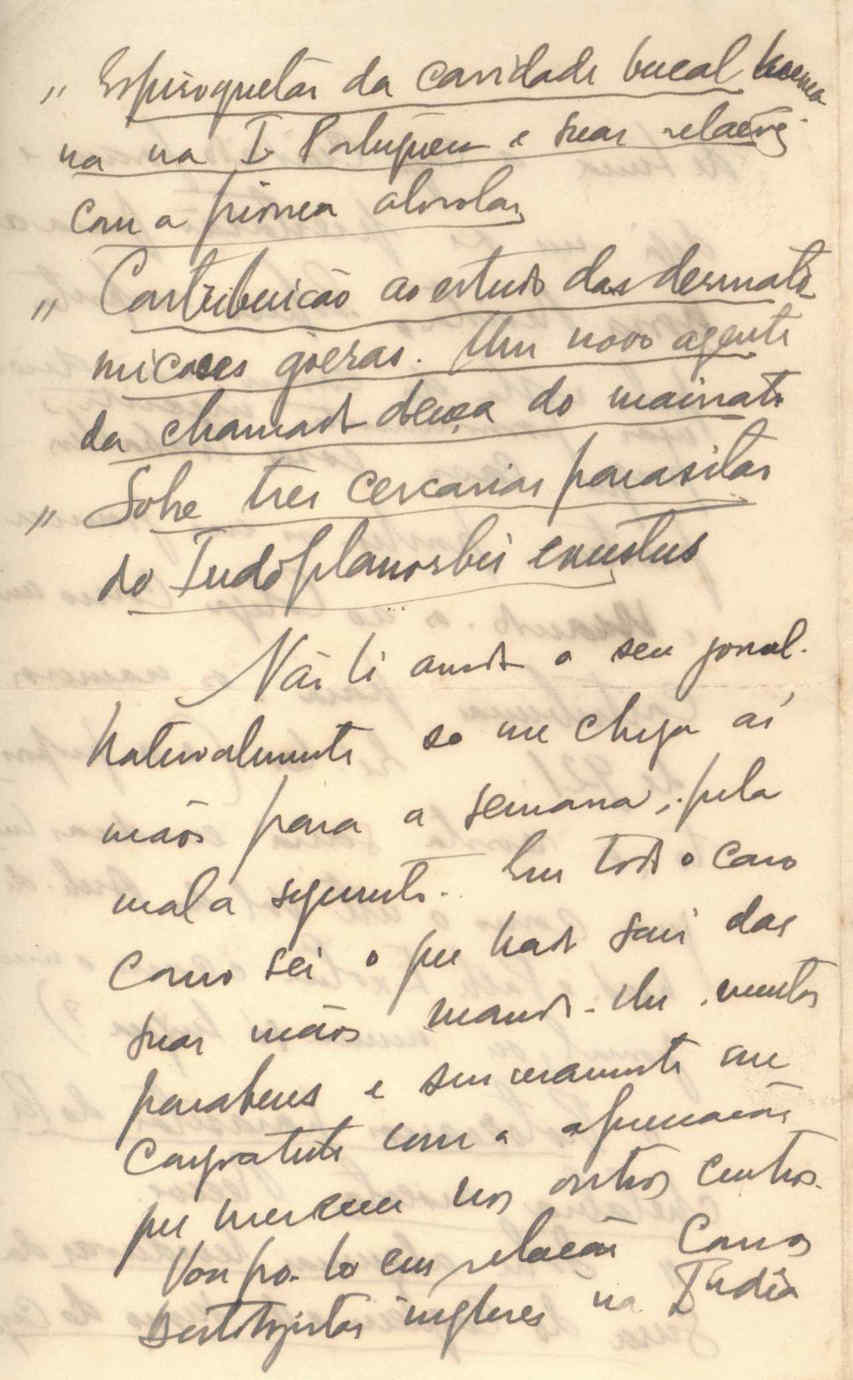 " Espiroquetas da cavidade bucal huma-
na na I. Portuguesa e suas relações
com a piorrea alveolar
" Contribuição ao estudo das dermato-
micoses goesas. Um novo agente
da chamada doença do mainato
" Sobre tres cercarias parasitas
do Indoplanorbis exustus
Não li ainda o seu jornal.
Naturalmente so me chega ás
mãos para a semana, pela
mala seguinte. Em todo o caso
como sei o que pode sair das
suas mãos mando-lhe muitos
parabens e sinceramente me
congratulo com a apreciação
que mereceu nos outros centros.
Vou po-lo em relação com os
protistologistas ingleses na India